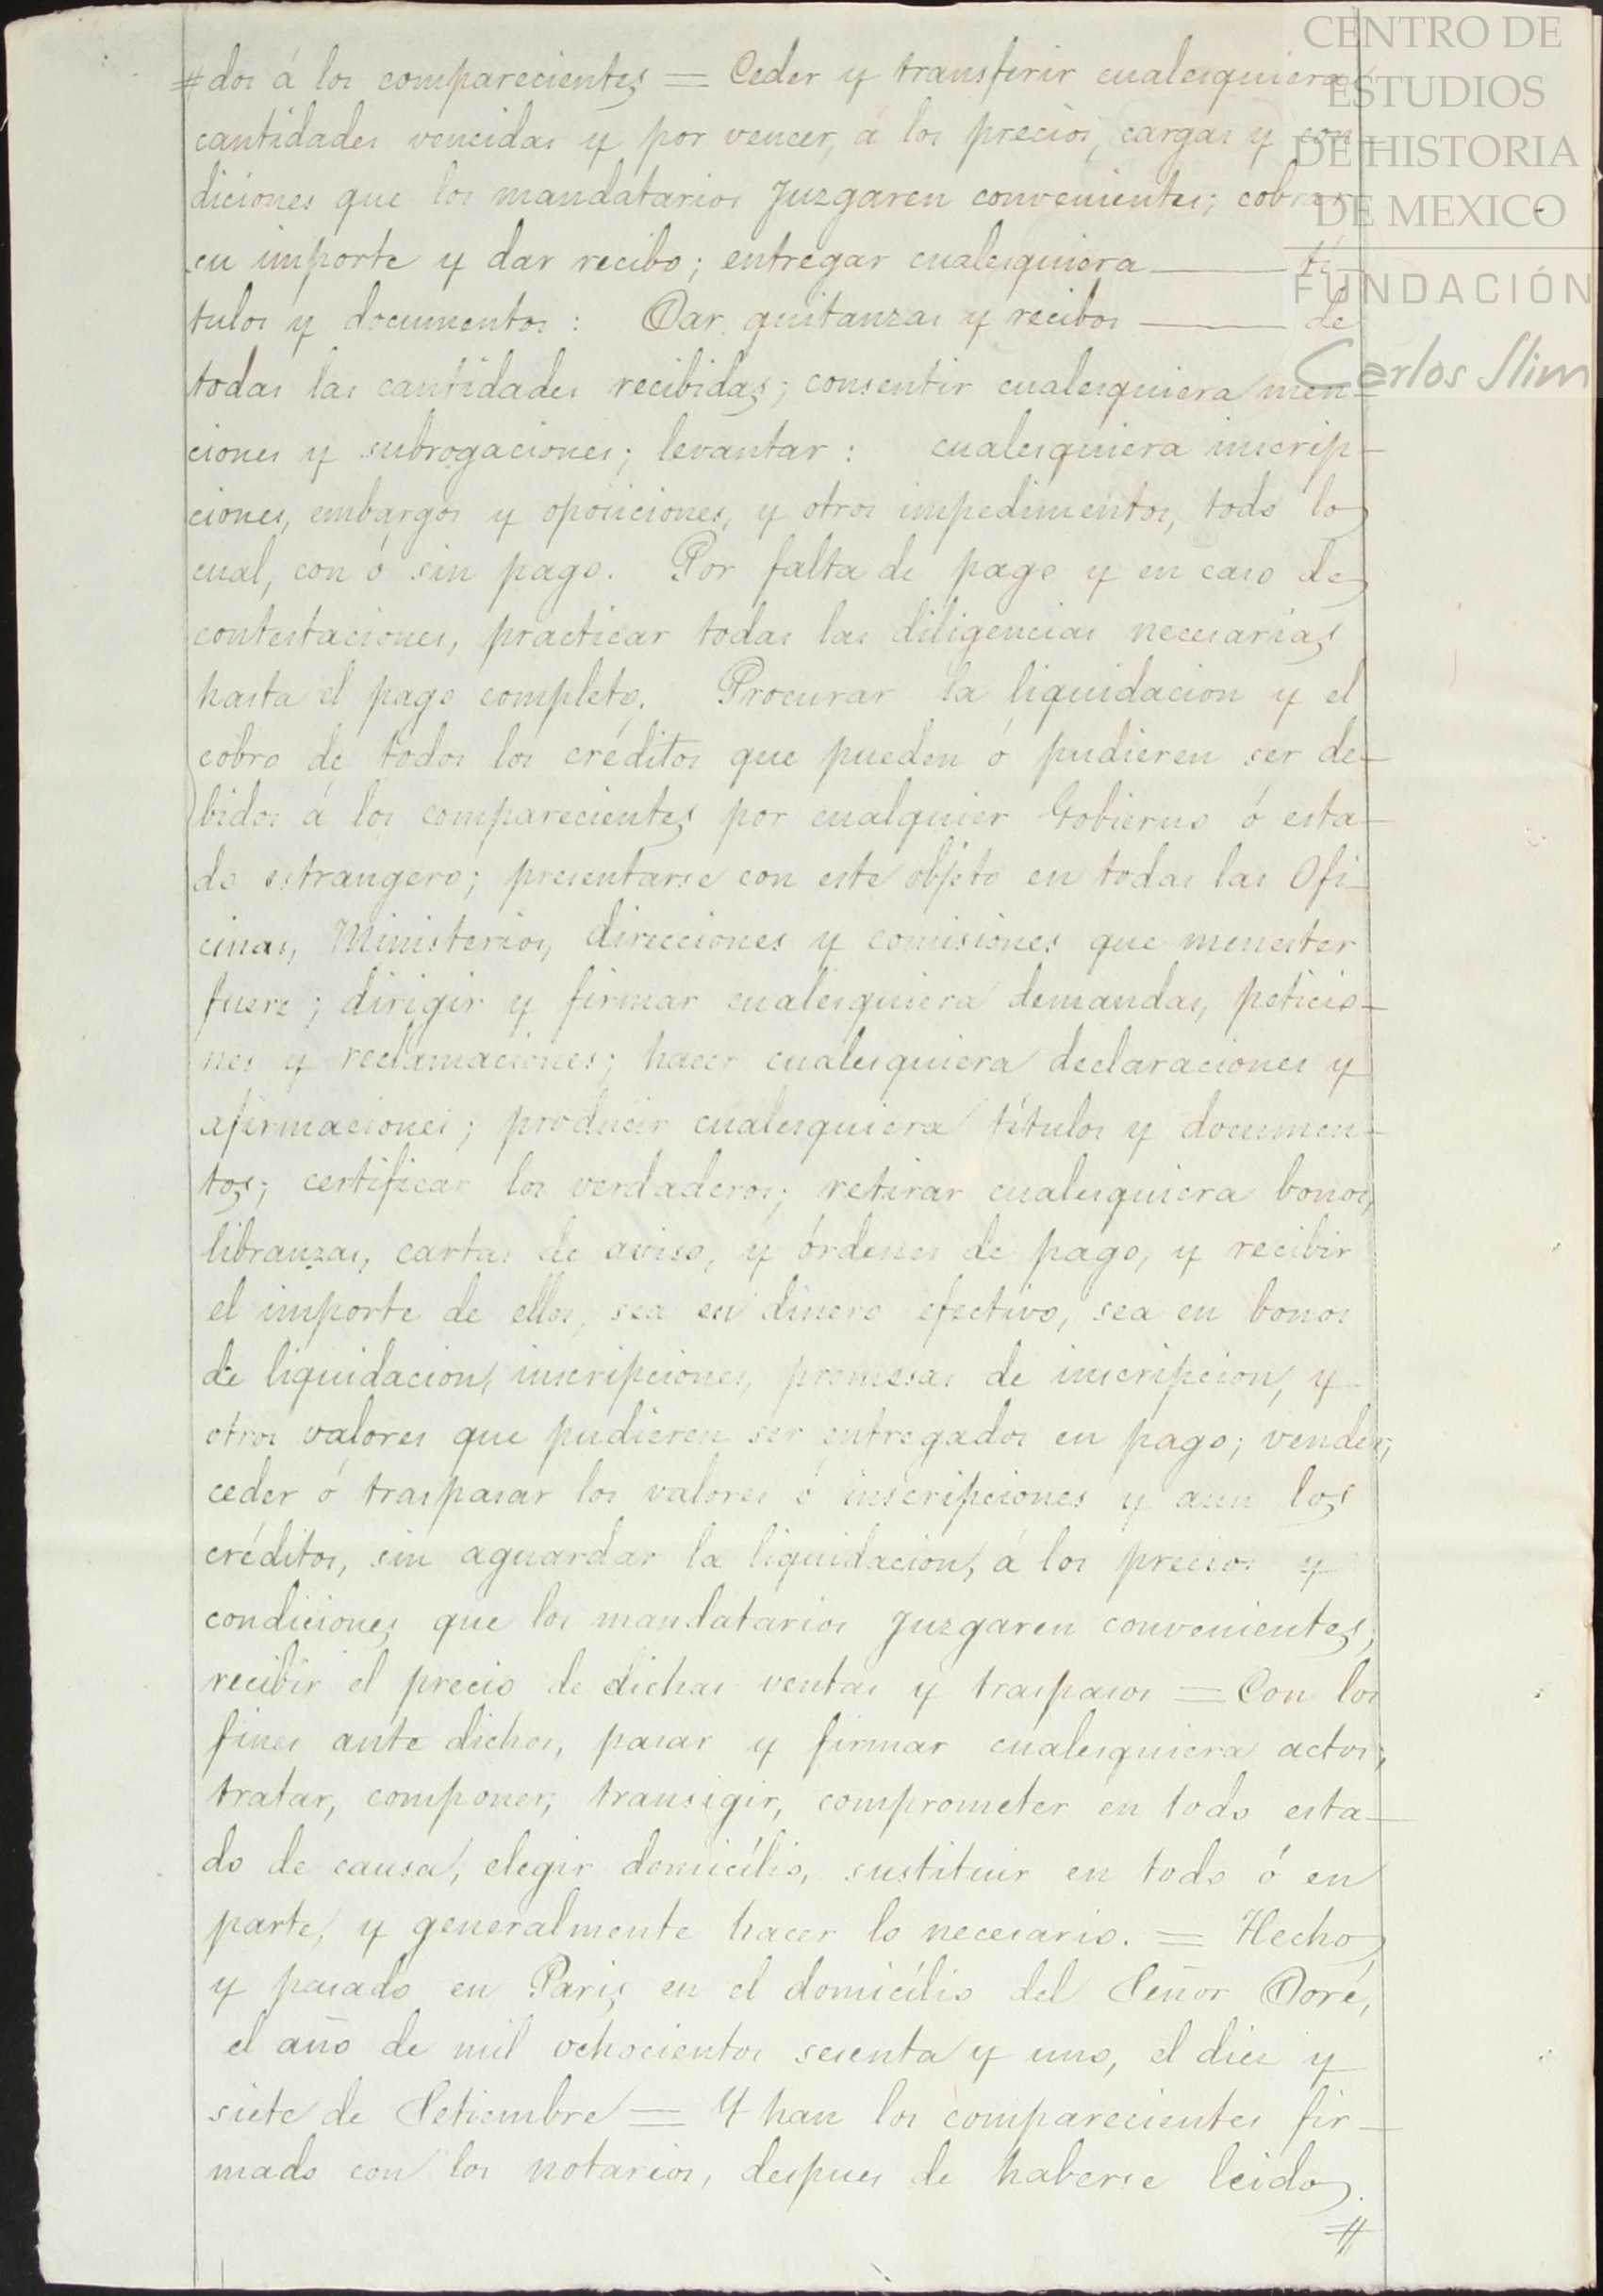 CENTRO DE
ESTUDIOS
DE HISTORIA
DE MEXICO
FUNDACIÓN
Carlos Slim
# dos á los comparecientes = Ceder y transferir cualesquiera
cantidades vencidas y por vencer, á los precios, cargas y con-
diciones que los mandatarios Juzgaren convenientes; cobrar
su importe y dar recibo; entregar cualesquiera —— tí-
tulos y documentos: Dar quitanzas y recibos —— de
todas las cantidades recibidas; consentir cualesquiera men-
ciones y subrogaciones; levantar: cualesquiera inscrip-
ciones, embargos y oposiciones, y otros impedimentos, todo lo
cual, con ó sin pago. Por falta de pago y en caso de
contestaciones, practicar todas las diligencias necesarias
hasta el pago completo. Procurar la liquidacion y el
cobro de todos los créditos que pueden ó pudieren ser de-
bidos á los comparecientes por cualquier Gobierno ó esta-
do estrangero; presentarse con este objeto en todas las Ofi-
cinas, Ministerios, direcciones y comisiones que menester
fuere; dirigir y firmar cualesquiera demandas, peticio-
nes y reclamaciones; hacer cualesquiera declaraciones y
afirmaciones; producir cualesquiera títulos y documen-
tos; certificar los verdaderos; retirar cualesquiera bonos,
libranzas, cartas de aviso, y órdenes de pago, y recibir
el importe de ellos, sea en dinero efectivo, sea en bonos
de liquidacion, inscripciones, promesas de inscripcion, y
otros valores que pudieren ser entregados en pago; vender,
ceder ó traspasar los valores ó inscripciones y aun los
créditos, sin aguardar la liquidacion, á los precios y
condiciones que los mandatarios Juzgaren convenientes;
recibir el precio de dichas ventas y traspasos = Con los
fines ante dichos, pasar y firmar cualesquiera actos;
tratar, componer, transigir, comprometer en todo esta-
do de causa, elegir domicílio, sustituir en todo ó en
parte, y generalmente hacer lo necesario. = Hecho
y pasado en Paris en el domicílio del Señor Doré,
el año de mil ochocientos sesenta y uno, el diez y
siete de Setiembre = Y han los comparecientes fir-
mado con los notarios, despues de haberse leido.
#